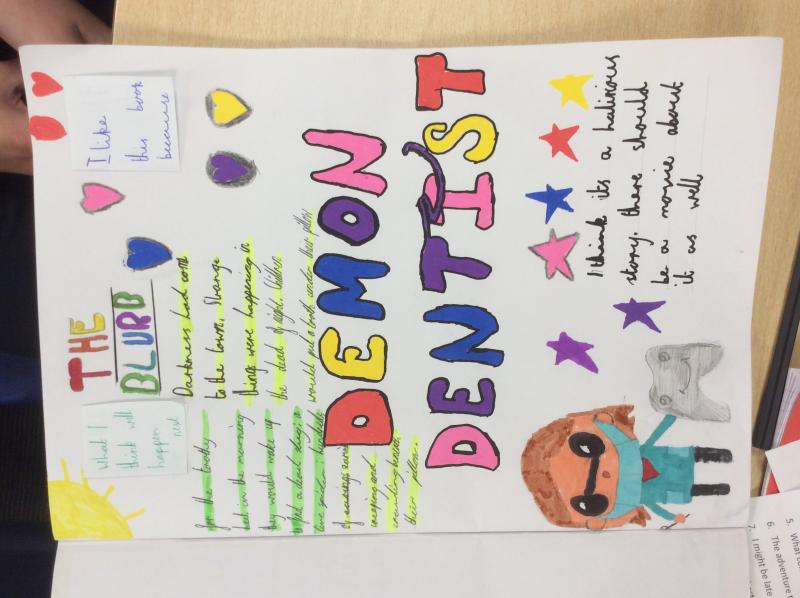 What I
think will
happen
next
THE
BLURB
I like
this book
because
Darkness had come
to the town. Strange
things were happening in
the dead of night. Children
would put a tooth under their pillow
for the toothy
back in the morning
they would wake up
to find a dead slug; a
live spider; hundreds
of earwigs
creeping and
crawling beneath
their pillow.
DEMON
DENTIST
I think its a halirious
story. there should
be a movie about
it as well
5. What
6. The adventure
7. I might be late